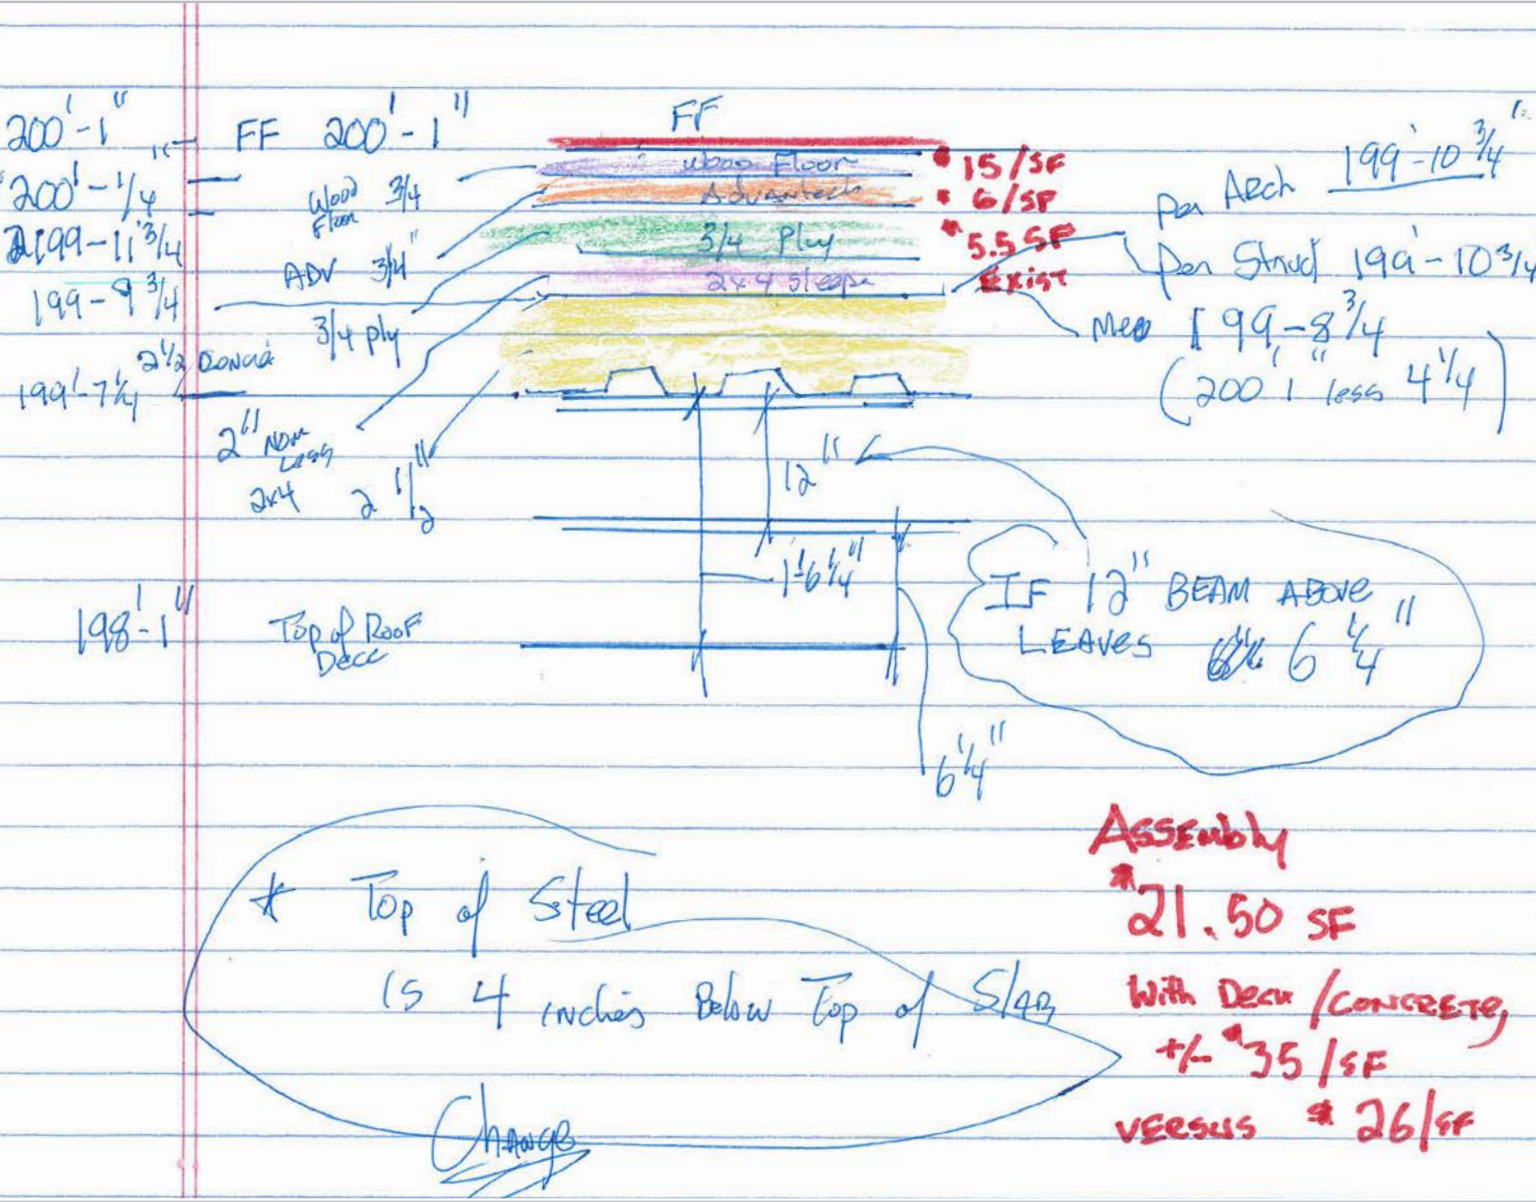 200'-1"
200'-1/4
199-11 3/4
199-9 3/4
2 1/2
199'-7 1/4
198'-1"
FF 200'-1"
Wood Floor 3/4
ADV 3/4"
3/4 Ply
2" Nom
Less
2x4
2 1/2"
Top of Roof
Deck
FF
Wood Floor
Advantech
3/4 Ply
2x4 Sleeper
$15/SF
$6/SF
$5.5 SF
Exist
per Arch 199'-10 3/4"
per Struct 199'-10 3/4
199-8 3/4
(200' 1" less 4 1/4)
12"
1'-6 1/4"
6 1/4"
IF 12" BEAM ABOVE
LEAVES 6 1/4"
* Top of Steel
is 4 inches Below Top of Slab
Change
Assembly
$21.50 SF
With Deck/CONCRETE,
+/- $35/SF
VERSUS $26/SF